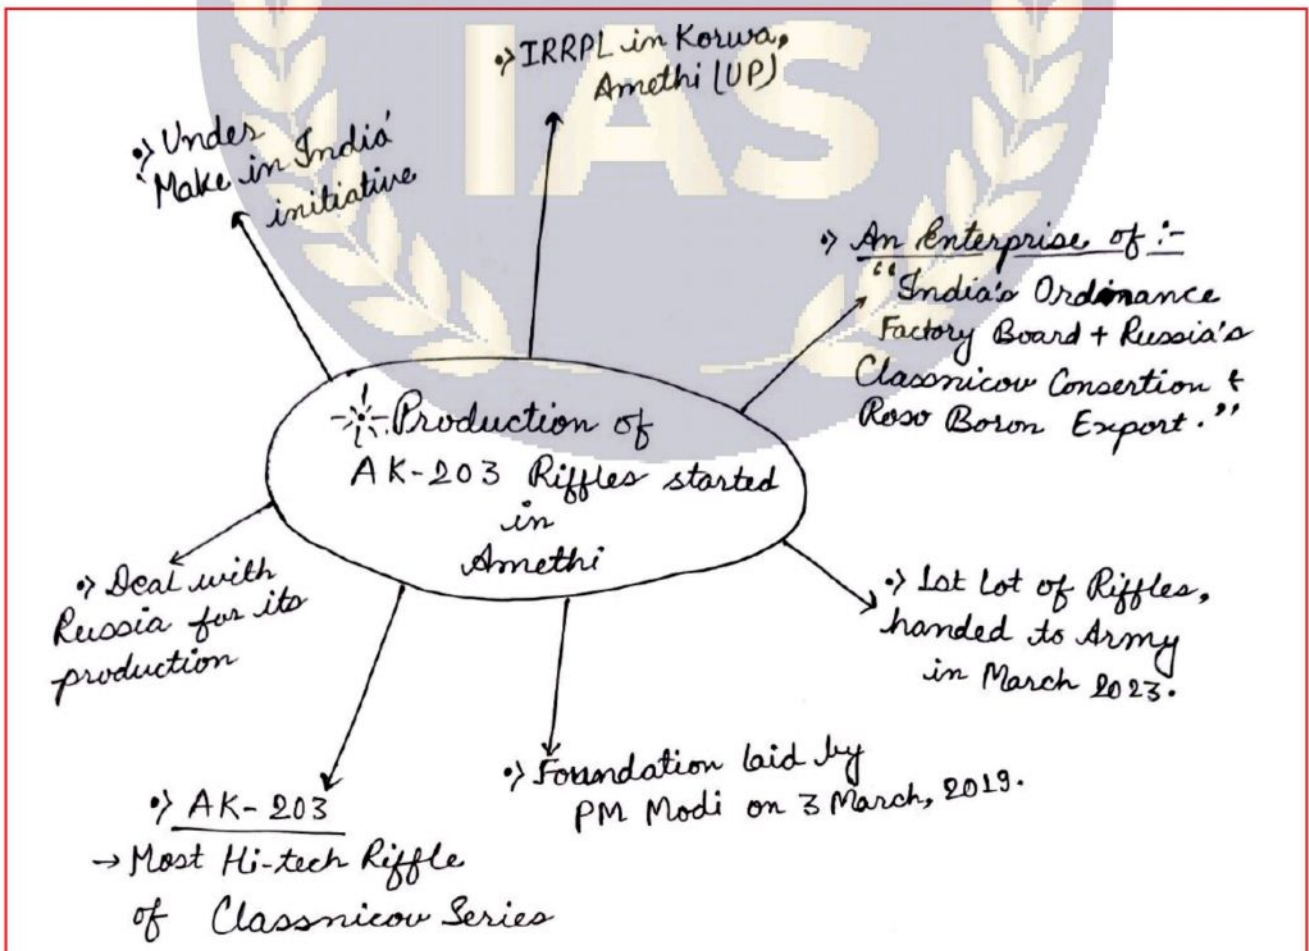 IAS
•> IRRPL in Korwa,
Amethi (UP)
•> Under
'Make in India'
initiative
•> An Enterprise of :-
"India's Ordinance
Factory Board + Russia's
Classnicov Consertion &
Roso Boron Export."
Production of
AK-203 Riffles started
in
Amethi
•> Deal with
Russia for its
production
•> 1st Lot of Riffles,
handed to Army
in March 2023.
•> Foundation laid by
PM Modi on 3 March, 2019.
•> AK-203
→ Most Hi-tech Riffle
of Classnicov Series